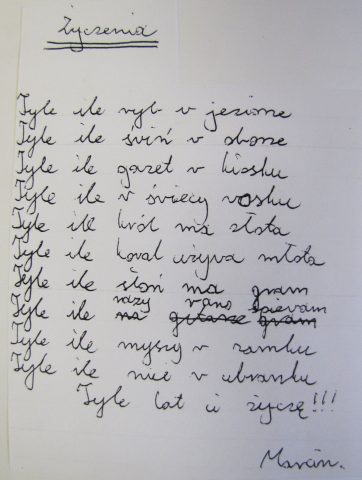 Życzenia
Tyle ile ryb v jezioze
Tyle ile śviń v oboze
Tyle ile gazet v kiosku
Tyle ile v śviecy vosku
Tyle ile król ma złota
Tyle ile koval używa młota
Tyle ile słoń ma gram
Tyle ile razy rano śpievam
na gitarze gram
Tyle ile myszy v zamku
Tyle ile nuc v ubranku
Tyle lat ci życzę!!!
Marcin.